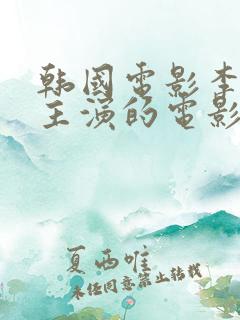 韩国电影李
主演的电影
夏西唯
未经同意禁止转载